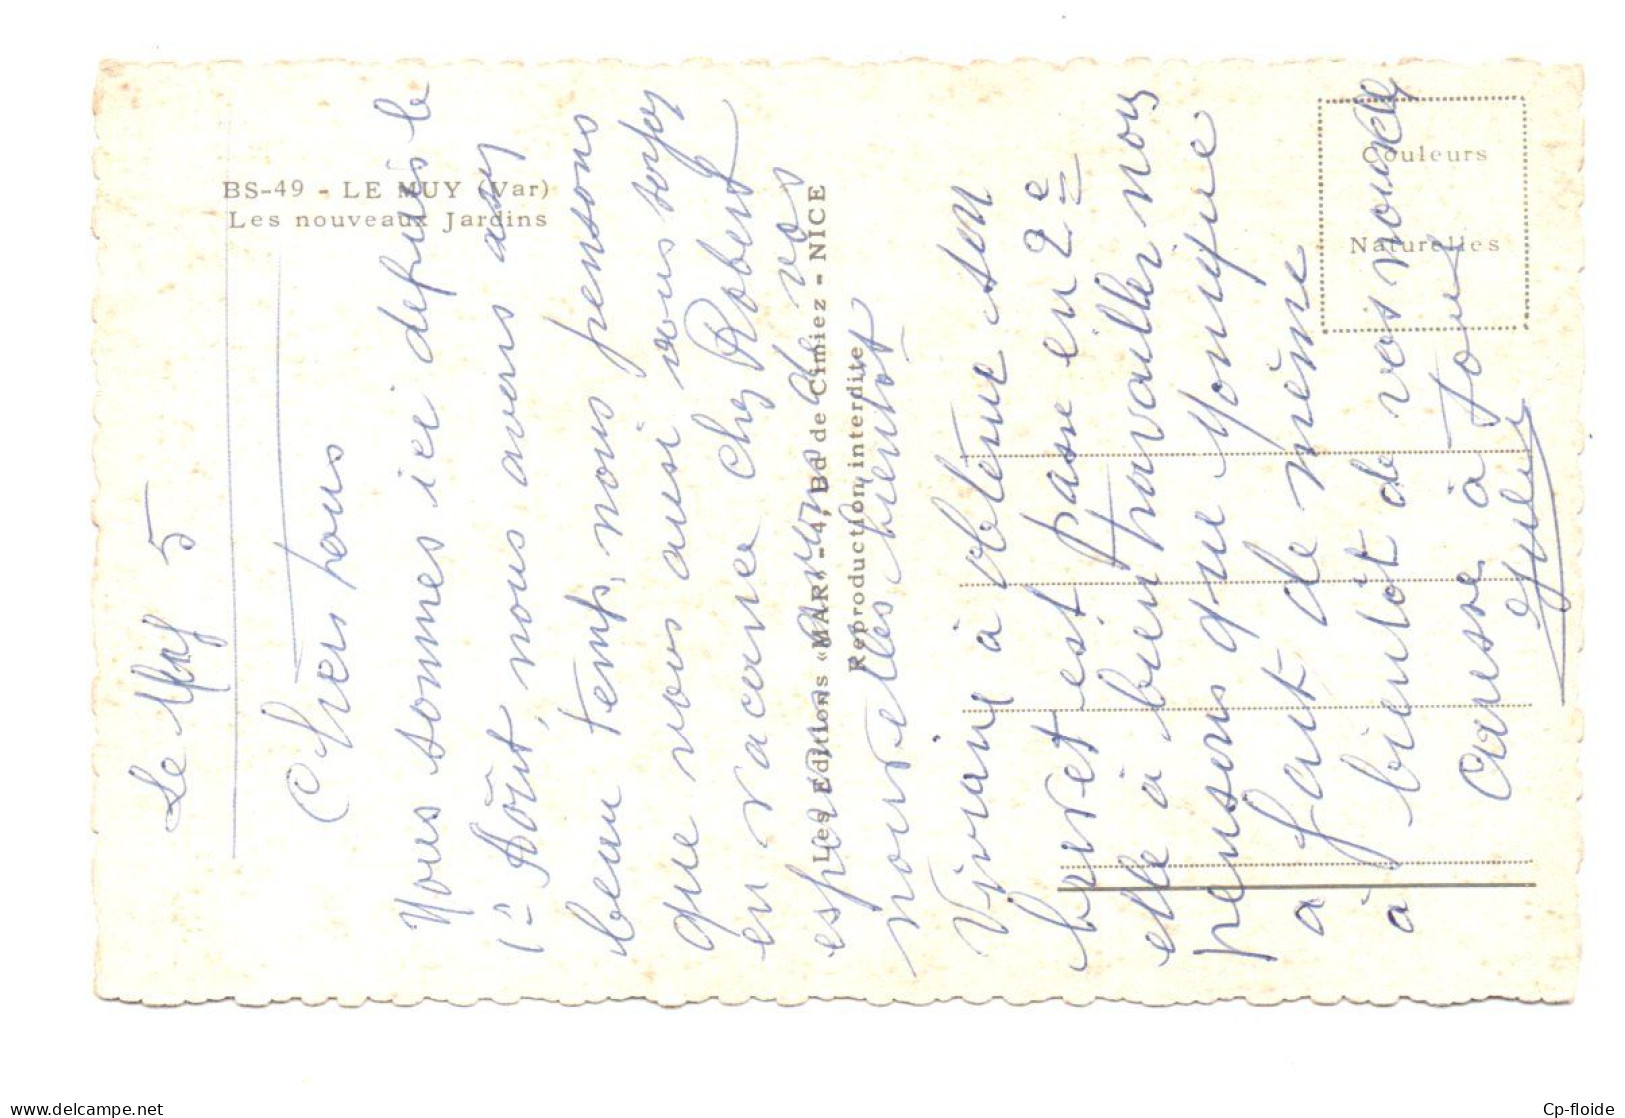 BS-49 - LE MUY (Var)
Les nouveaux Jardins
Couleurs
Naturelles
Les Editions «MAR» - 4, Bd de Cimiez - NICE
Reproduction interdite
Le Muy 5
Chers tous
Nous sommes ici depuis le
1er Août, nous avons du
beau temps, nous pensons
que vous aussi vous soyez
en vacance chez Robert
esperons avons de vos
nouvelles bientôt
Viviane à obtenue son
brevet est passe en 2e
elle à bien travailler nous
pensons que Monique
a fait de même
à bientôt de vos nouvelles
à tous